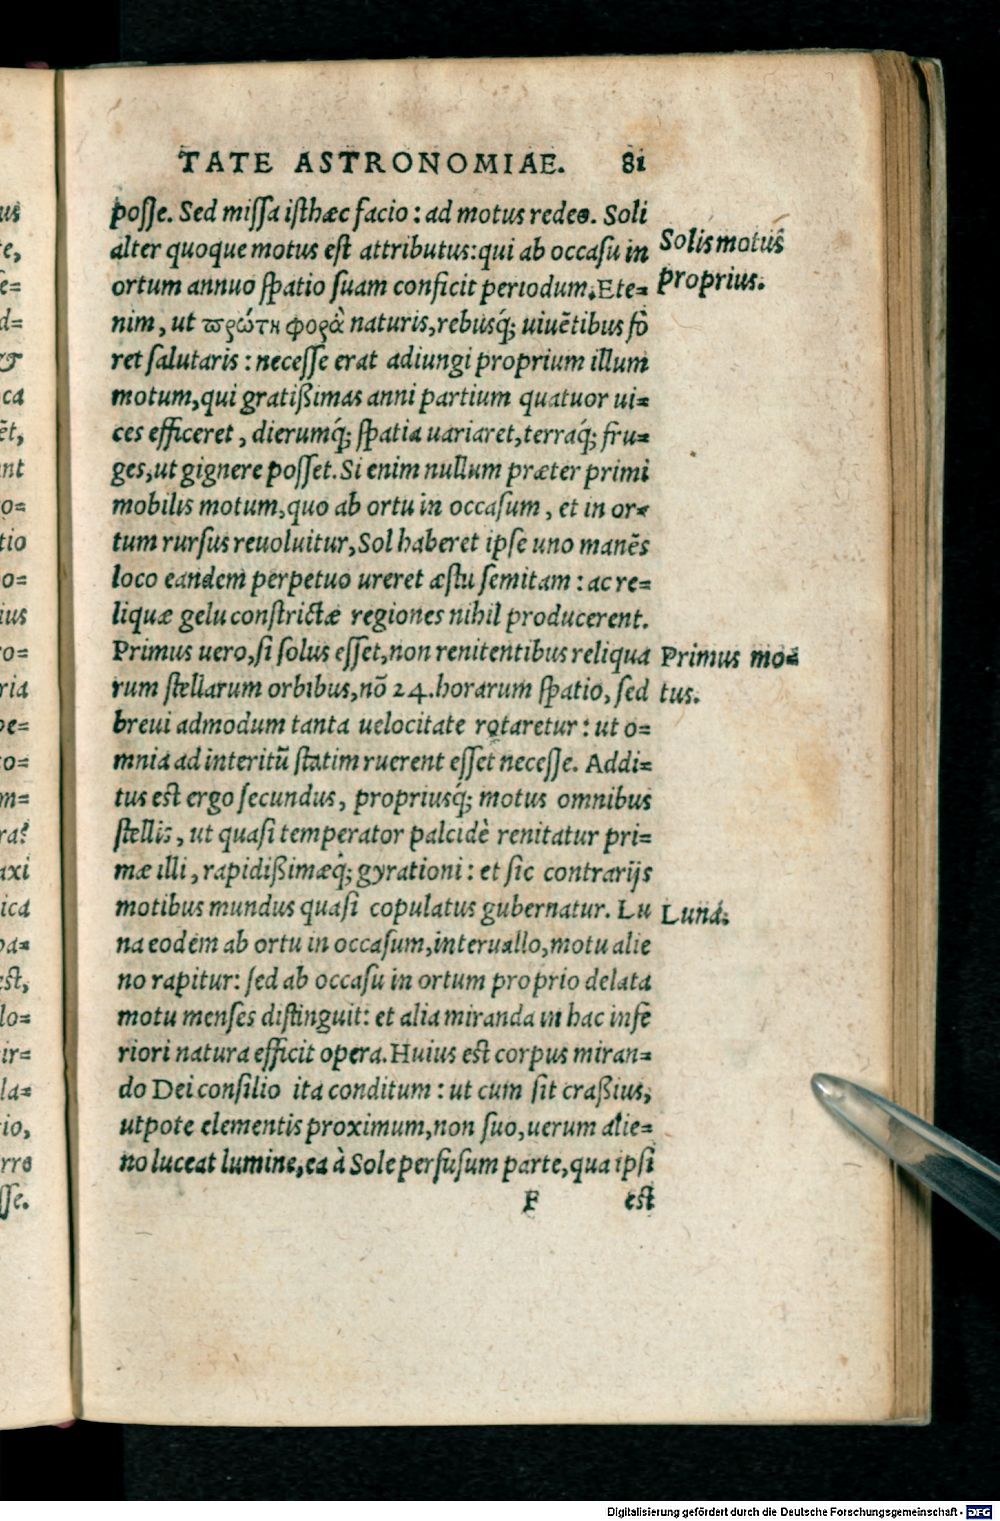 TATE ASTRONOMIAE. 81
posse. Sed missa isthæc facio: ad motus redeo. Soli
alter quoque motus est attributus: qui ab occasu in
Solis motus
ortum annuo spatio suam conficit periodum. Ete=
proprius.
nim, ut πρώτη φορὰ naturis, rebusq́; uiuẽtibus fo
ret salutaris: necesse erat adiungi proprium illum
motum, qui gratißimas anni partium quatuor ui=
ces efficeret, dierumq́; spatia uariaret, terraq́; fru=
ges, ut gignere posset. Si enim nullum præter primi
mobilis motum, quo ab ortu in occasum, et in or=
tum rursus reuoluitur, Sol haberet ipse uno manẽs
loco eandem perpetuo ureret æstu semitam: ac re=
liquæ gelu constrictæ regiones nihil producerent.
Primus uero, si solus esset, non renitentibus reliqua
Primus mo=
rum stellarum orbibus, nõ 24. horarum spatio, sed
tus.
breui admodum tanta uelocitate rotaretur: ut o=
mnia ad interitũ statim ruerent esset necesse. Addi=
tus est ergo secundus, propriusq́; motus omnibus
stellis, ut quasi temperator palcidè renitatur pri=
mæ illi, rapidißimæq́; gyrationi: et sic contrarijs
motibus mundus quasi copulatus gubernatur. Lu
Luna.
na eodem ab ortu in occasum, interuallo, motu alie
no rapitur: sed ab occasu in ortum proprio delata
motu menses distinguit: et alia miranda in hac infe
riori natura efficit opera. Huius est corpus miran=
do Dei consilio ita conditum: ut cum sit craßius,
utpote elementis proximum, non suo, uerum alie=
no luceat lumine, ea à Sole perfusum parte, qua ipsi
F est
Digitalisierung gefördert durch die Deutsche Forschungsgemeinschaft - DFG